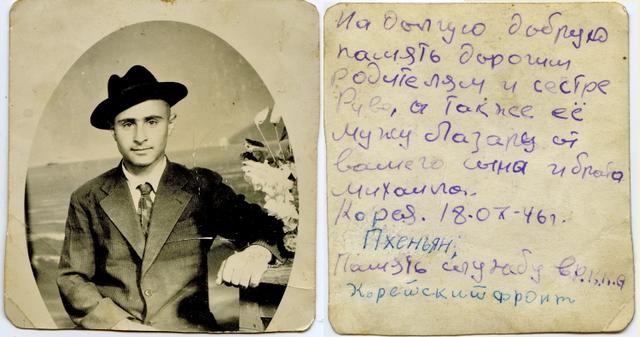 На долгую добрую
память дорогим
родителям и сестре
Риве, а также её
мужу Лазару от
вашего сына и брата
Михаила.
Корея. 18.IX-46г.
Пхеньян,
Память службу в
Корейский фронт